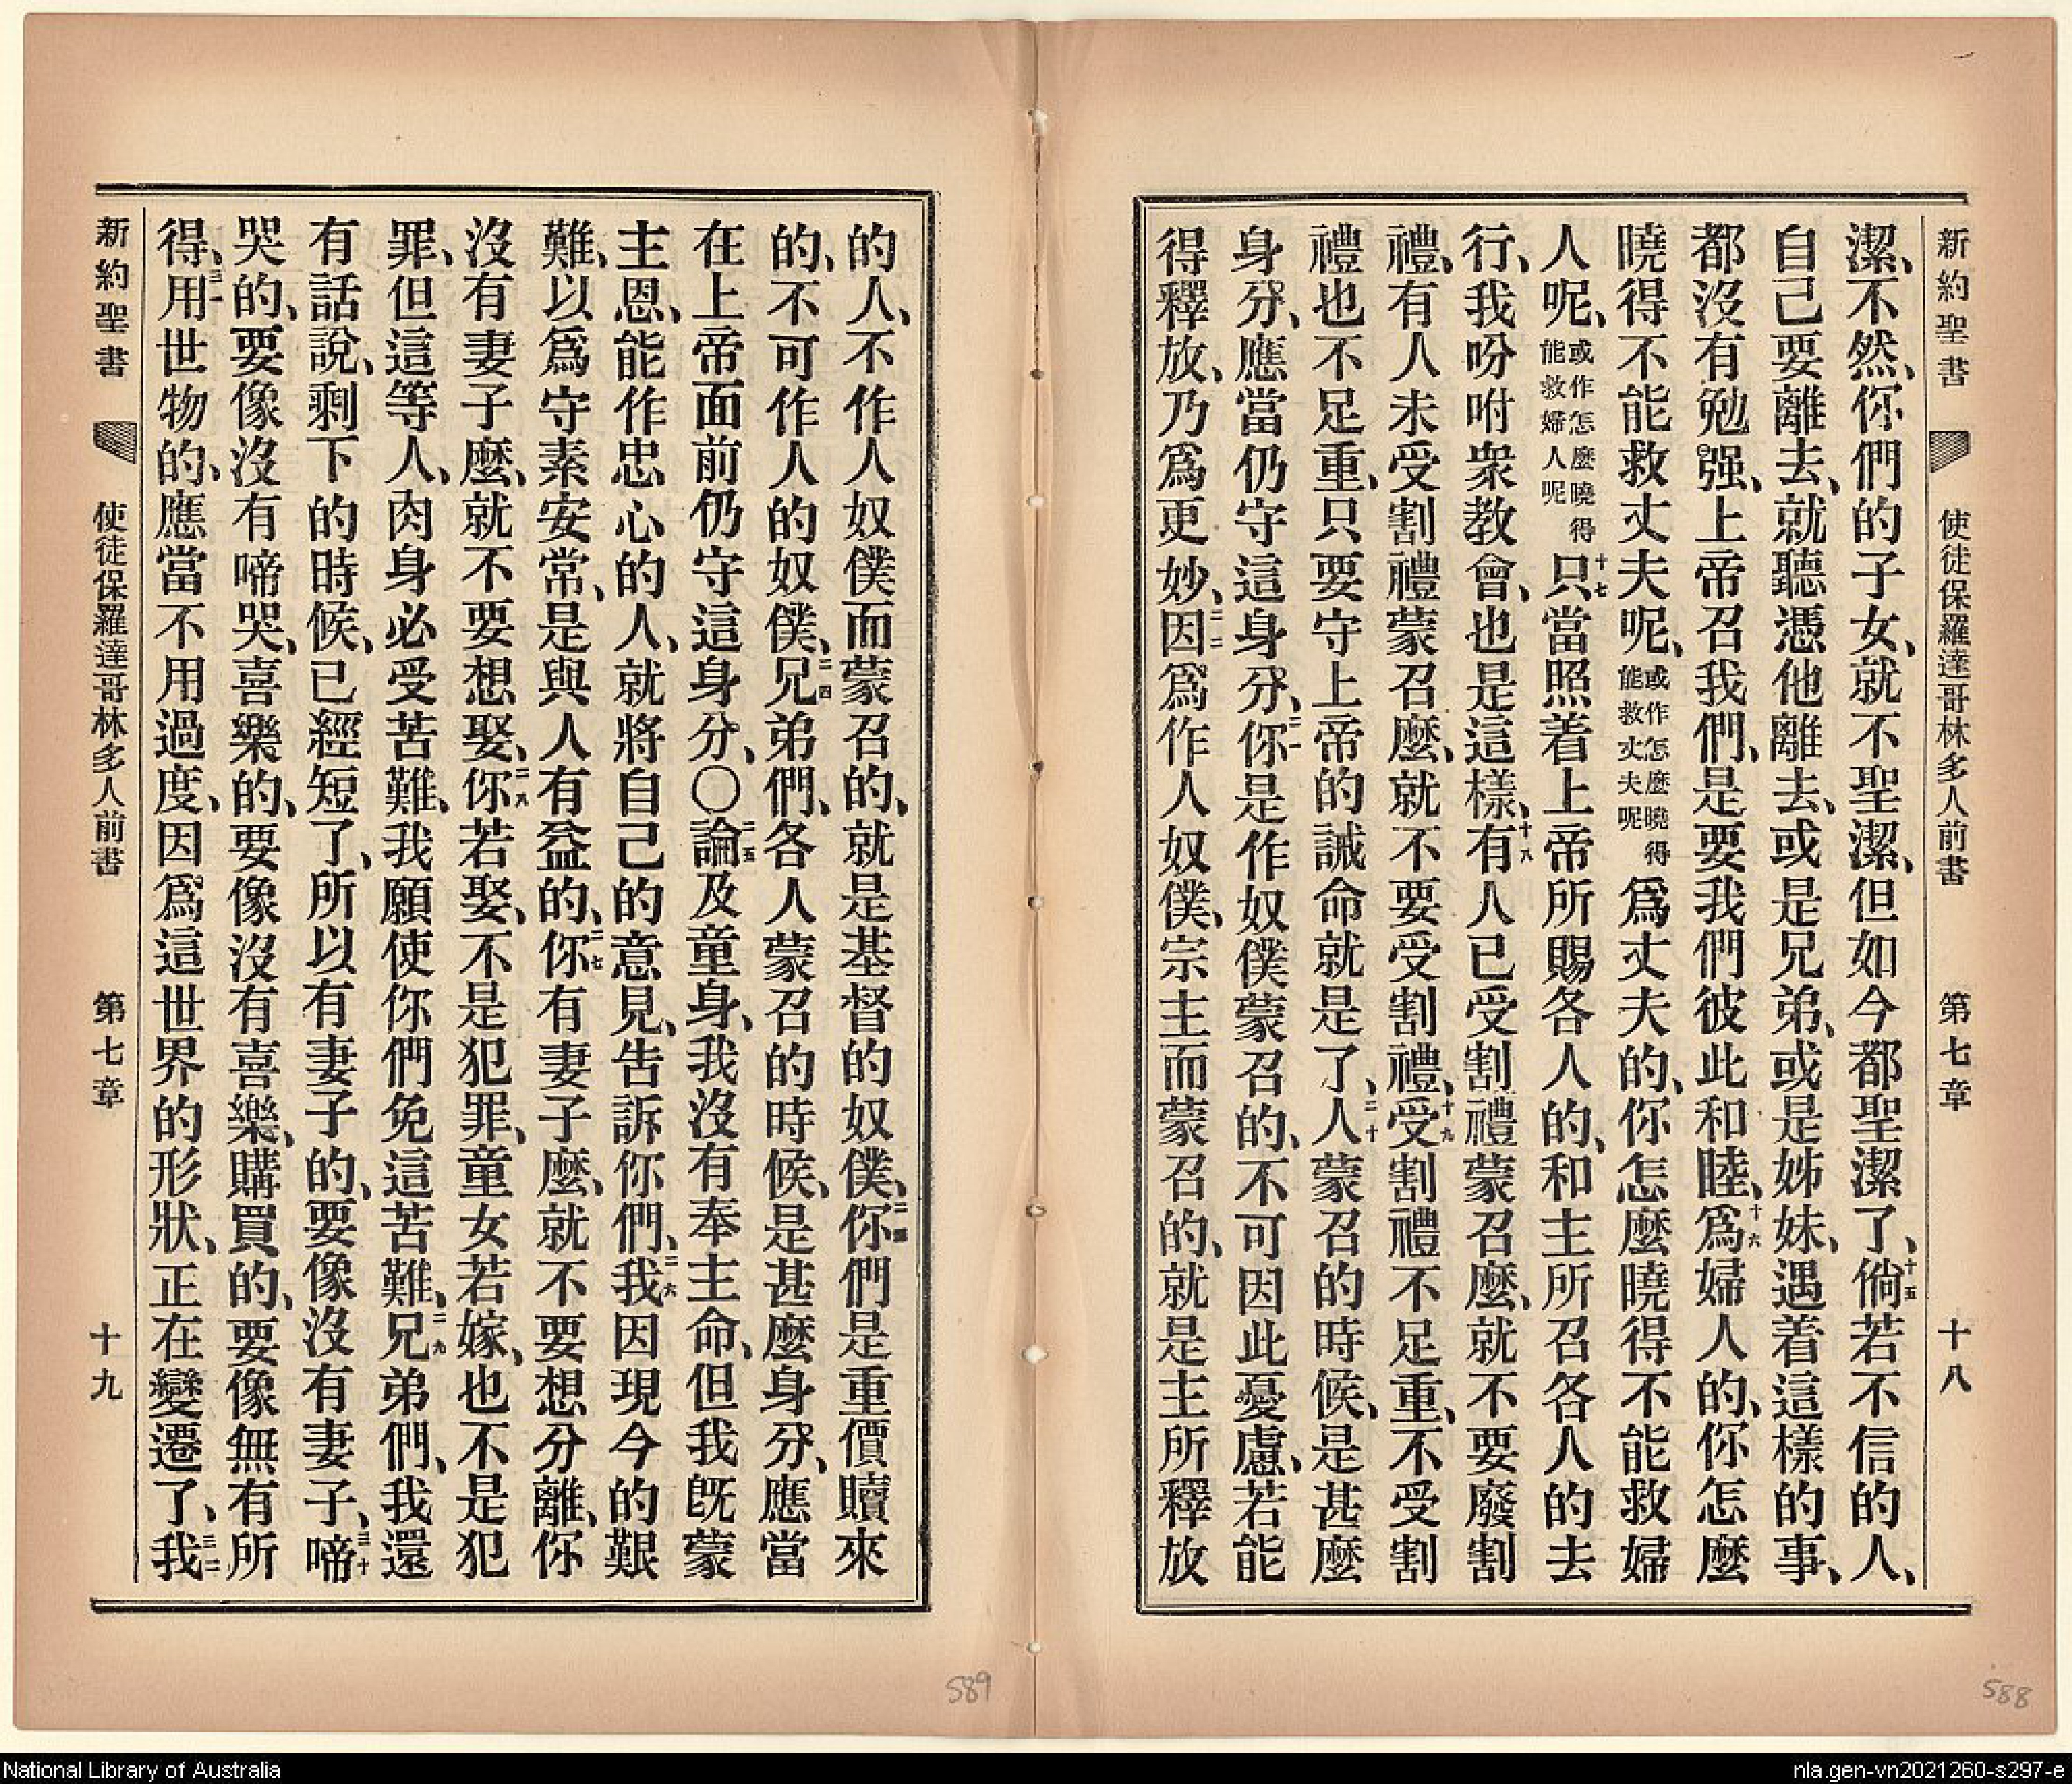 新約聖書 使徒保羅達哥林多人前書 第七章 十八
潔、不然、你們的子女、就不聖潔、但如今都聖潔了、十五倘若不信的人、
自己要離去、就聽憑他離去、或是兄弟、或是姊妹、遇着這樣的事、
都沒有勉强、上帝召我們、是要我們彼此和睦、十六爲婦人的、你怎麼
曉得不能救丈夫呢、或作怎麼曉得能救丈夫呢爲丈夫的、你怎麼曉得不能救婦
人呢、或作怎麼曉得能救婦人呢十七只當照着上帝所賜各人的、和主所召各人的去
行、我吩咐衆教會、也是這樣、十八有人已受割禮蒙召麼、就不要廢割
禮、有人未受割禮蒙召麼、就不要受割禮、十九受割禮不足重、不受割
禮也不足重、只要守上帝的誡命就是了、二十人蒙召的時候、是甚麼
身分、應當仍守這身分、二一你是作奴僕蒙召的、不可因此憂慮、若能
得釋放、乃爲更妙、二二因爲作人奴僕、宗主而蒙召的、就是主所釋放
的人、不作人奴僕而蒙召的、就是基督的奴僕、二三你們是重價贖來
的、不可作人的奴僕、二四兄弟們、各人蒙召的時候、是甚麼身分、應當
在上帝面前仍守這身分、〇二五論及童身、我沒有奉主命、但我旣蒙
主恩、能作忠心的人、就將自己的意見、告訴你們、二六我因現今的艱
難、以爲守素安常、是與人有益的、二七你有妻子麼、就不要想分離、你
沒有妻子麼、就不要想娶、二八你若娶、不是犯罪、童女若嫁、也不是犯
罪、但這等人、肉身必受苦難、我願使你們免這苦難、二九兄弟們、我還
有話說、剩下的時候、已經短了、所以有妻子的、要像沒有妻子、三十啼
哭的、要像沒有啼哭、喜樂的、要像沒有喜樂、購買的、要像無有所
得、三一用世物的、應當不用過度、因爲這世界的形狀、正在變遷了、三二我
新約聖書 使徒保羅達哥林多人前書 第七章 十九
589
588
National Library of Australia
nla.gen-vn2021260-s297-e